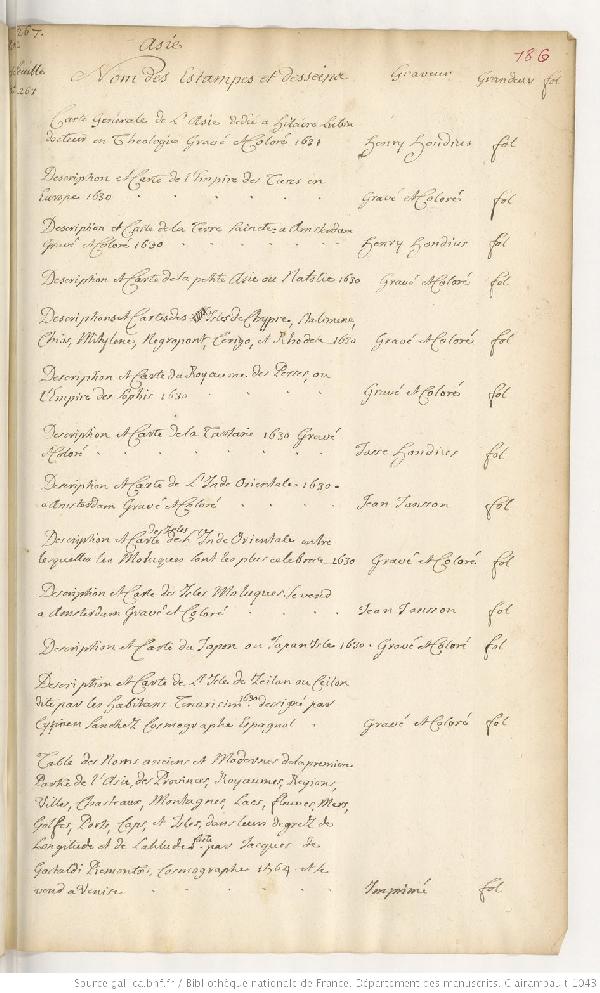 267.
Asie
186
Nom des Estampes et desseins Graveur Grandeur fol
267
Carte Générale de L'Asie dedié a Hilaire
docteur en Theologie Gravé et Coloré 1631 Henry Hondius fol
Description et Carte de l'Empire des Turcs en
Europe 1630 Gravé et Coloré fol
Description et Carte de la Terre Sainte a Amsterdam
Gravé et Coloré 1630 Henry Hondius fol
Description et Carte de la petite Asie ou Natolie 1630 Gravé et Coloré fol
Descriptions et Cartes des Isles de Chypre, Stalimene,
Chios, Mitylene, Negrepont, Cerigo, et Rhodes 1630 Gravé et Coloré fol
Description et Carte du Royaume des Perses, ou
l'Empire des Sophis 1630 Gravé et Coloré fol
Description et Carte de la Tartarie 1630 Gravé
et Coloré Josse Hondius fol
Description et Carte de L'Inde Orientale 1630
a Amsterdam Gravé et Coloré Jean Jansson fol
Description et Carte des Isles de l'Inde Orientale entre
lesquelles les Moluques sont les plus celebres 1630 Gravé et Coloré fol
Description et Carte des Isles Moluques, se vend
a Amsterdam Gravé et Coloré Jean Jansson fol
Description et Carte du Japon ou Japan Isles 1630 Gravé et Coloré fol
Description et Carte de L'Isle de Zeilan ou Ceilon
dite par les habitans Tenarisim 1630 designé par
Cyprien Sanchez Cosmographe Espagnol Gravé et Coloré fol
Table des Noms anciens et Modernes de la premiere
Partie de l'Asie, des Provinces, Royaumes, Regions,
Villes, Chasteaux, Montagnes, Lacs, fleuves, Mers,
Golfes, Ports, Caps, et Isles, dans leurs degrez de
Longitude et de Latitude faite par Jacques de
Gastaldi Piemontois, Cosmographe 1564. et se
vend a Venise Imprimé fol
Source gallica.bnf.fr / Bibliothèque nationale de France. Département des manuscrits. Clairambault 1043